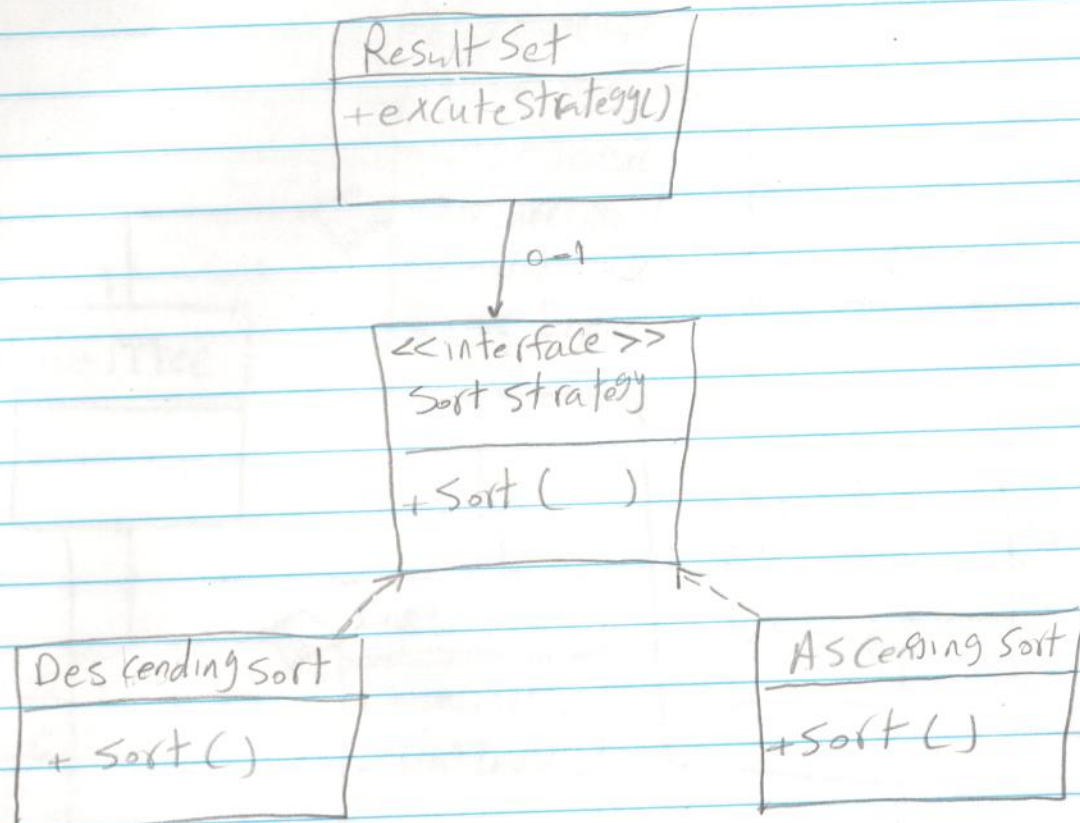 Result Set
+excuteStrategy()
0-1
<<interface>>
Sort Strategy
+ Sort ( )
Descending Sort
+ Sort ()
Ascending Sort
+ Sort ()